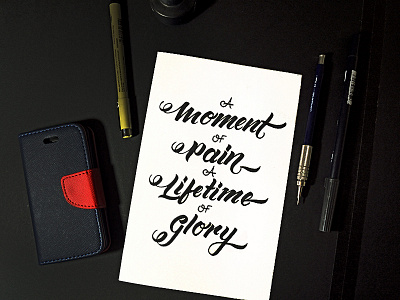 A
Moment
OF
Pain
A
Lifetime
OF
Glory